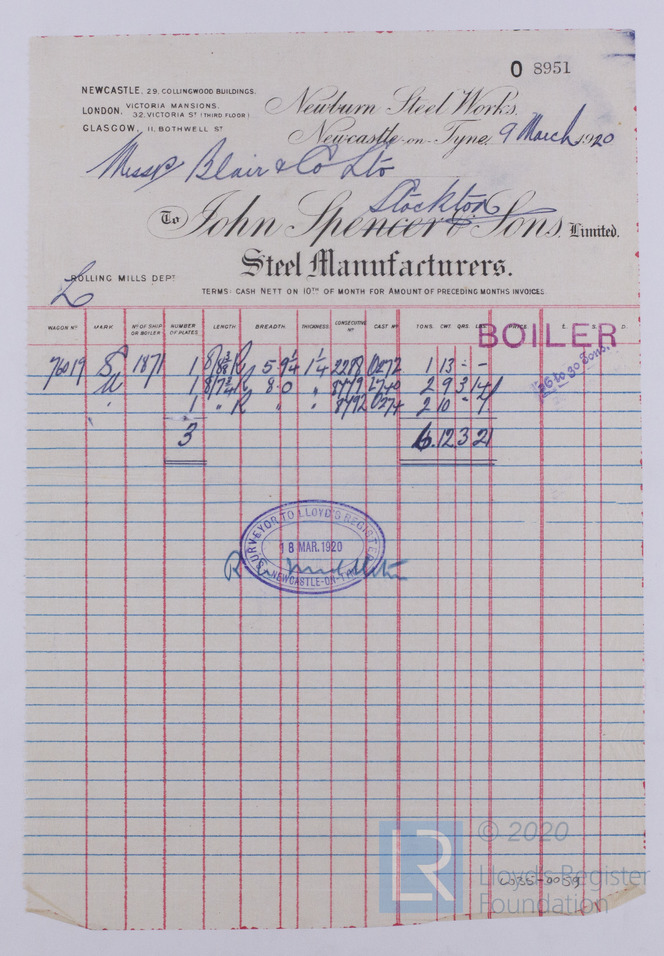 O 8951
NEWCASTLE, 29, COLLINGWOOD BUILDINGS.
LONDON, VICTORIA MANSIONS,
32, VICTORIA ST (THIRD FLOOR)
GLASGOW, 11, BOTHWELL ST
Newburn Steel Works,
Newcastle-on-Tyne, 9 March 1920
Messrs Blair & Co Ltd
Stockton
To John Spencer & Sons, Limited.
Steel Manufacturers.
ROLLING MILLS DEPT
TERMS: CASH NETT ON 10TH OF MONTH FOR AMOUNT OF PRECEDING MONTHS INVOICES
WAGON No MARK No OF SHIP OR BOILER NUMBER OF PLATES LENGTH BREADTH THICKNESS CONSECUTIVE No CAST No TONS. CWT. QRS. LBS. PRICE. £. S. D.
BOILER
26 to 30 Tons.
76019 S 1871 1 5 9 1/4 1 1/4 2289 0272 1 13 - -
M 1 8 0 " 8779 2740 2 9 3 14
" 1 " R " " 8792 0274 2 10 - 7
3 6 12 3 21
SURVEYOR TO LLOYD'S REGISTER
18 MAR. 1920
NEWCASTLE-ON-TYNE
LR
© 2020
Lloyd's Register
Foundation